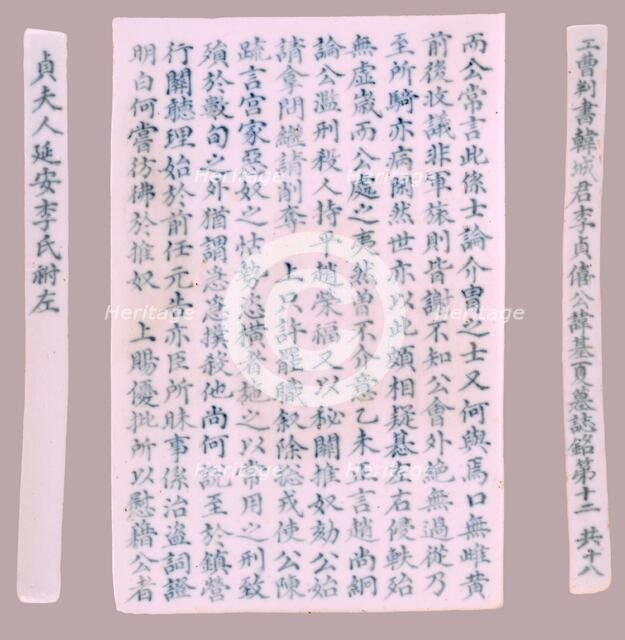 工曹判書韓城君李貞僖公諱基夏墓誌銘第十二 共十八
而公常言此係士論介冑之士又何與焉口無雌黃
前後收議非軍旅則皆謝不知公會外絕無過從乃
至所騎亦病閑然世亦以此頗相疑基左右侵軼殆
無虛歲而公處之夷然曾不介意乙未正言趙尚絅
論公濫刑殺人持平趙榮福又以秘關推奴劾公始
請拿問繼請削奪 上只許罷職敘除摠戎使公陳
疏言宮家惡奴之怙勢恣橫者施之以常用之刑致
殞於數旬之外猶謂忿怒撲殺他尚何說至於鎮營
行關聽理始於前任元非亦臣所昧事係治盜詞證
明白何嘗彷彿於推奴 上賜優批所以慰藉公者
貞夫人延安李氏祔左
Heritage
Heritage
Heritage
Heritage
Heritage
Heritage
Heritage
Heritage
©